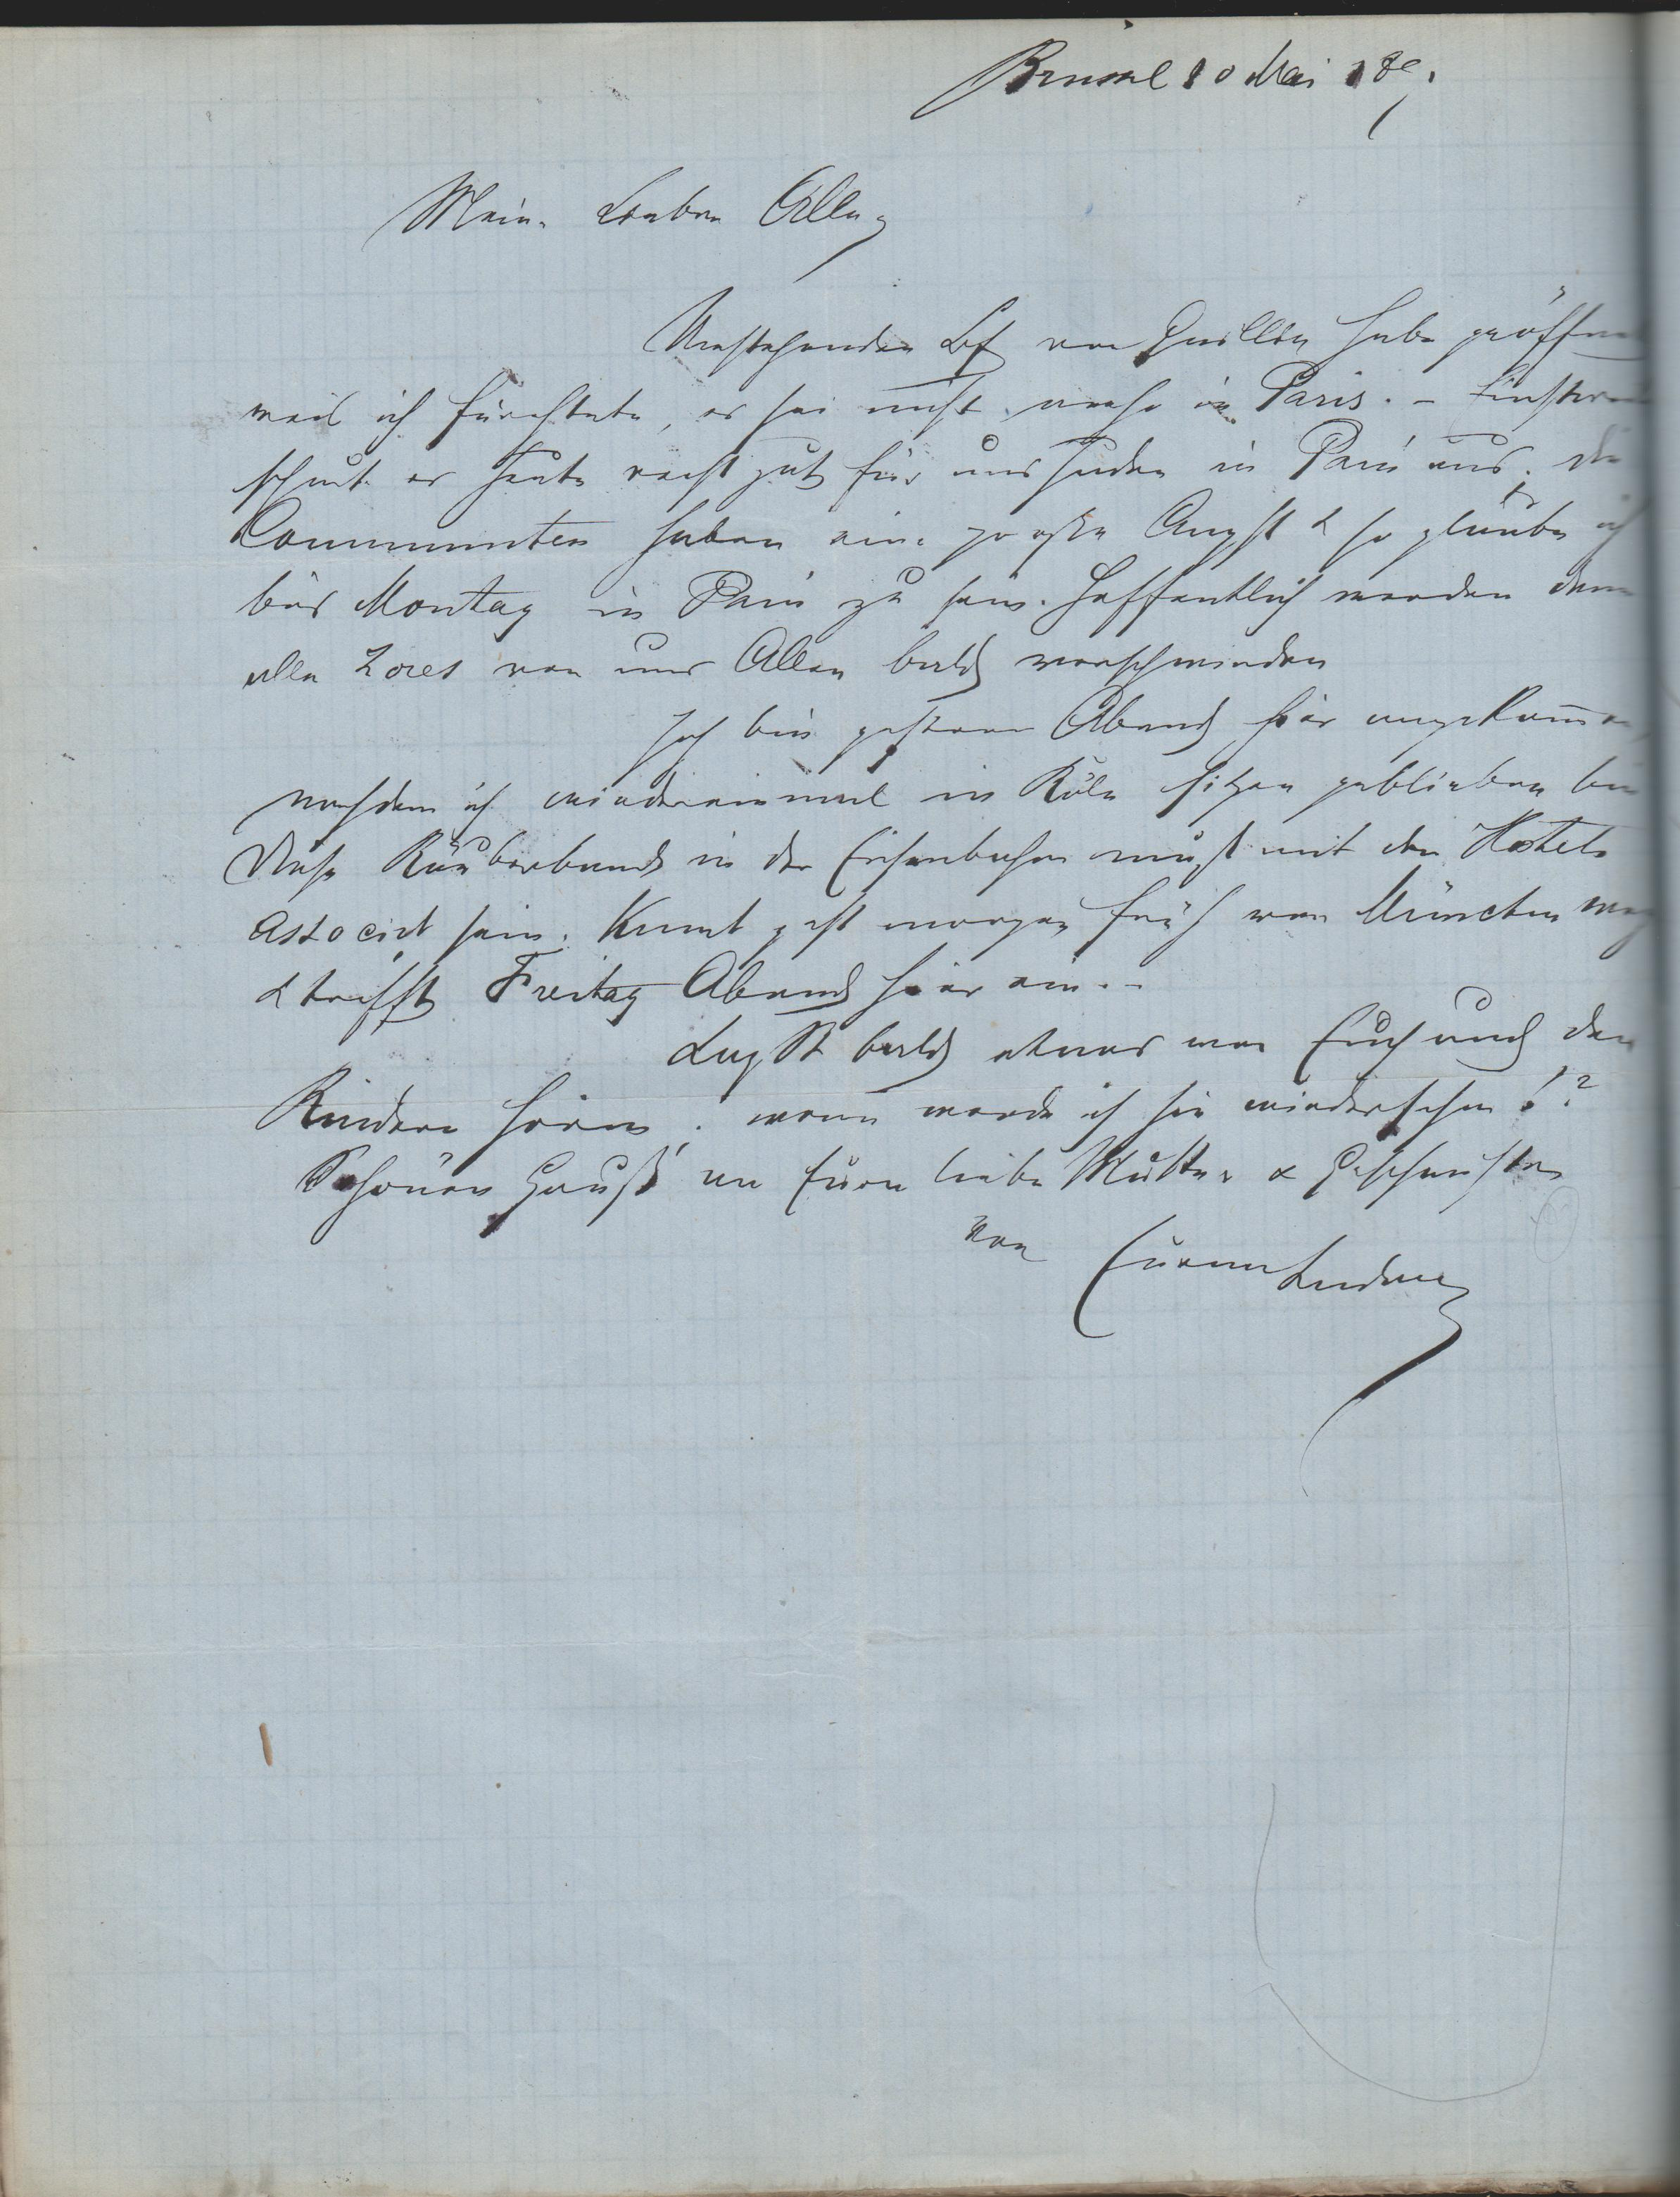 Brüssel 10 Mai 187
Meine Lieben Alle,
Umstehenden Bf von habe geöffnet
weil ich fürchtete, er sei nicht mehr in Paris. –
schaut es heute recht gut für uns Juden in Paris aus, die
Communisten haben eine große Angst & so glaube ich
bis Montag in Paris zu sein. Hoffentlich werden dann
alle Zores von uns Allen bald verschwinden
Ich bin gestern Abend hier angekommen,
nachdem ich wiedereinmal in Köln sitzen geblieben bin
Diese Räuberbande in der Eisenbahn muß mit den Hotels
associrt sein. geht morgen früh von München weg
& trifft Freitag Abend hier ein. –
Laßt bald etwas von Euch und den
Kindern hören, wann werde ich sie wiedersehen!?
Schönen Gruß an Eure liebe Mutter & Geschwister
von Eurem Ludwig